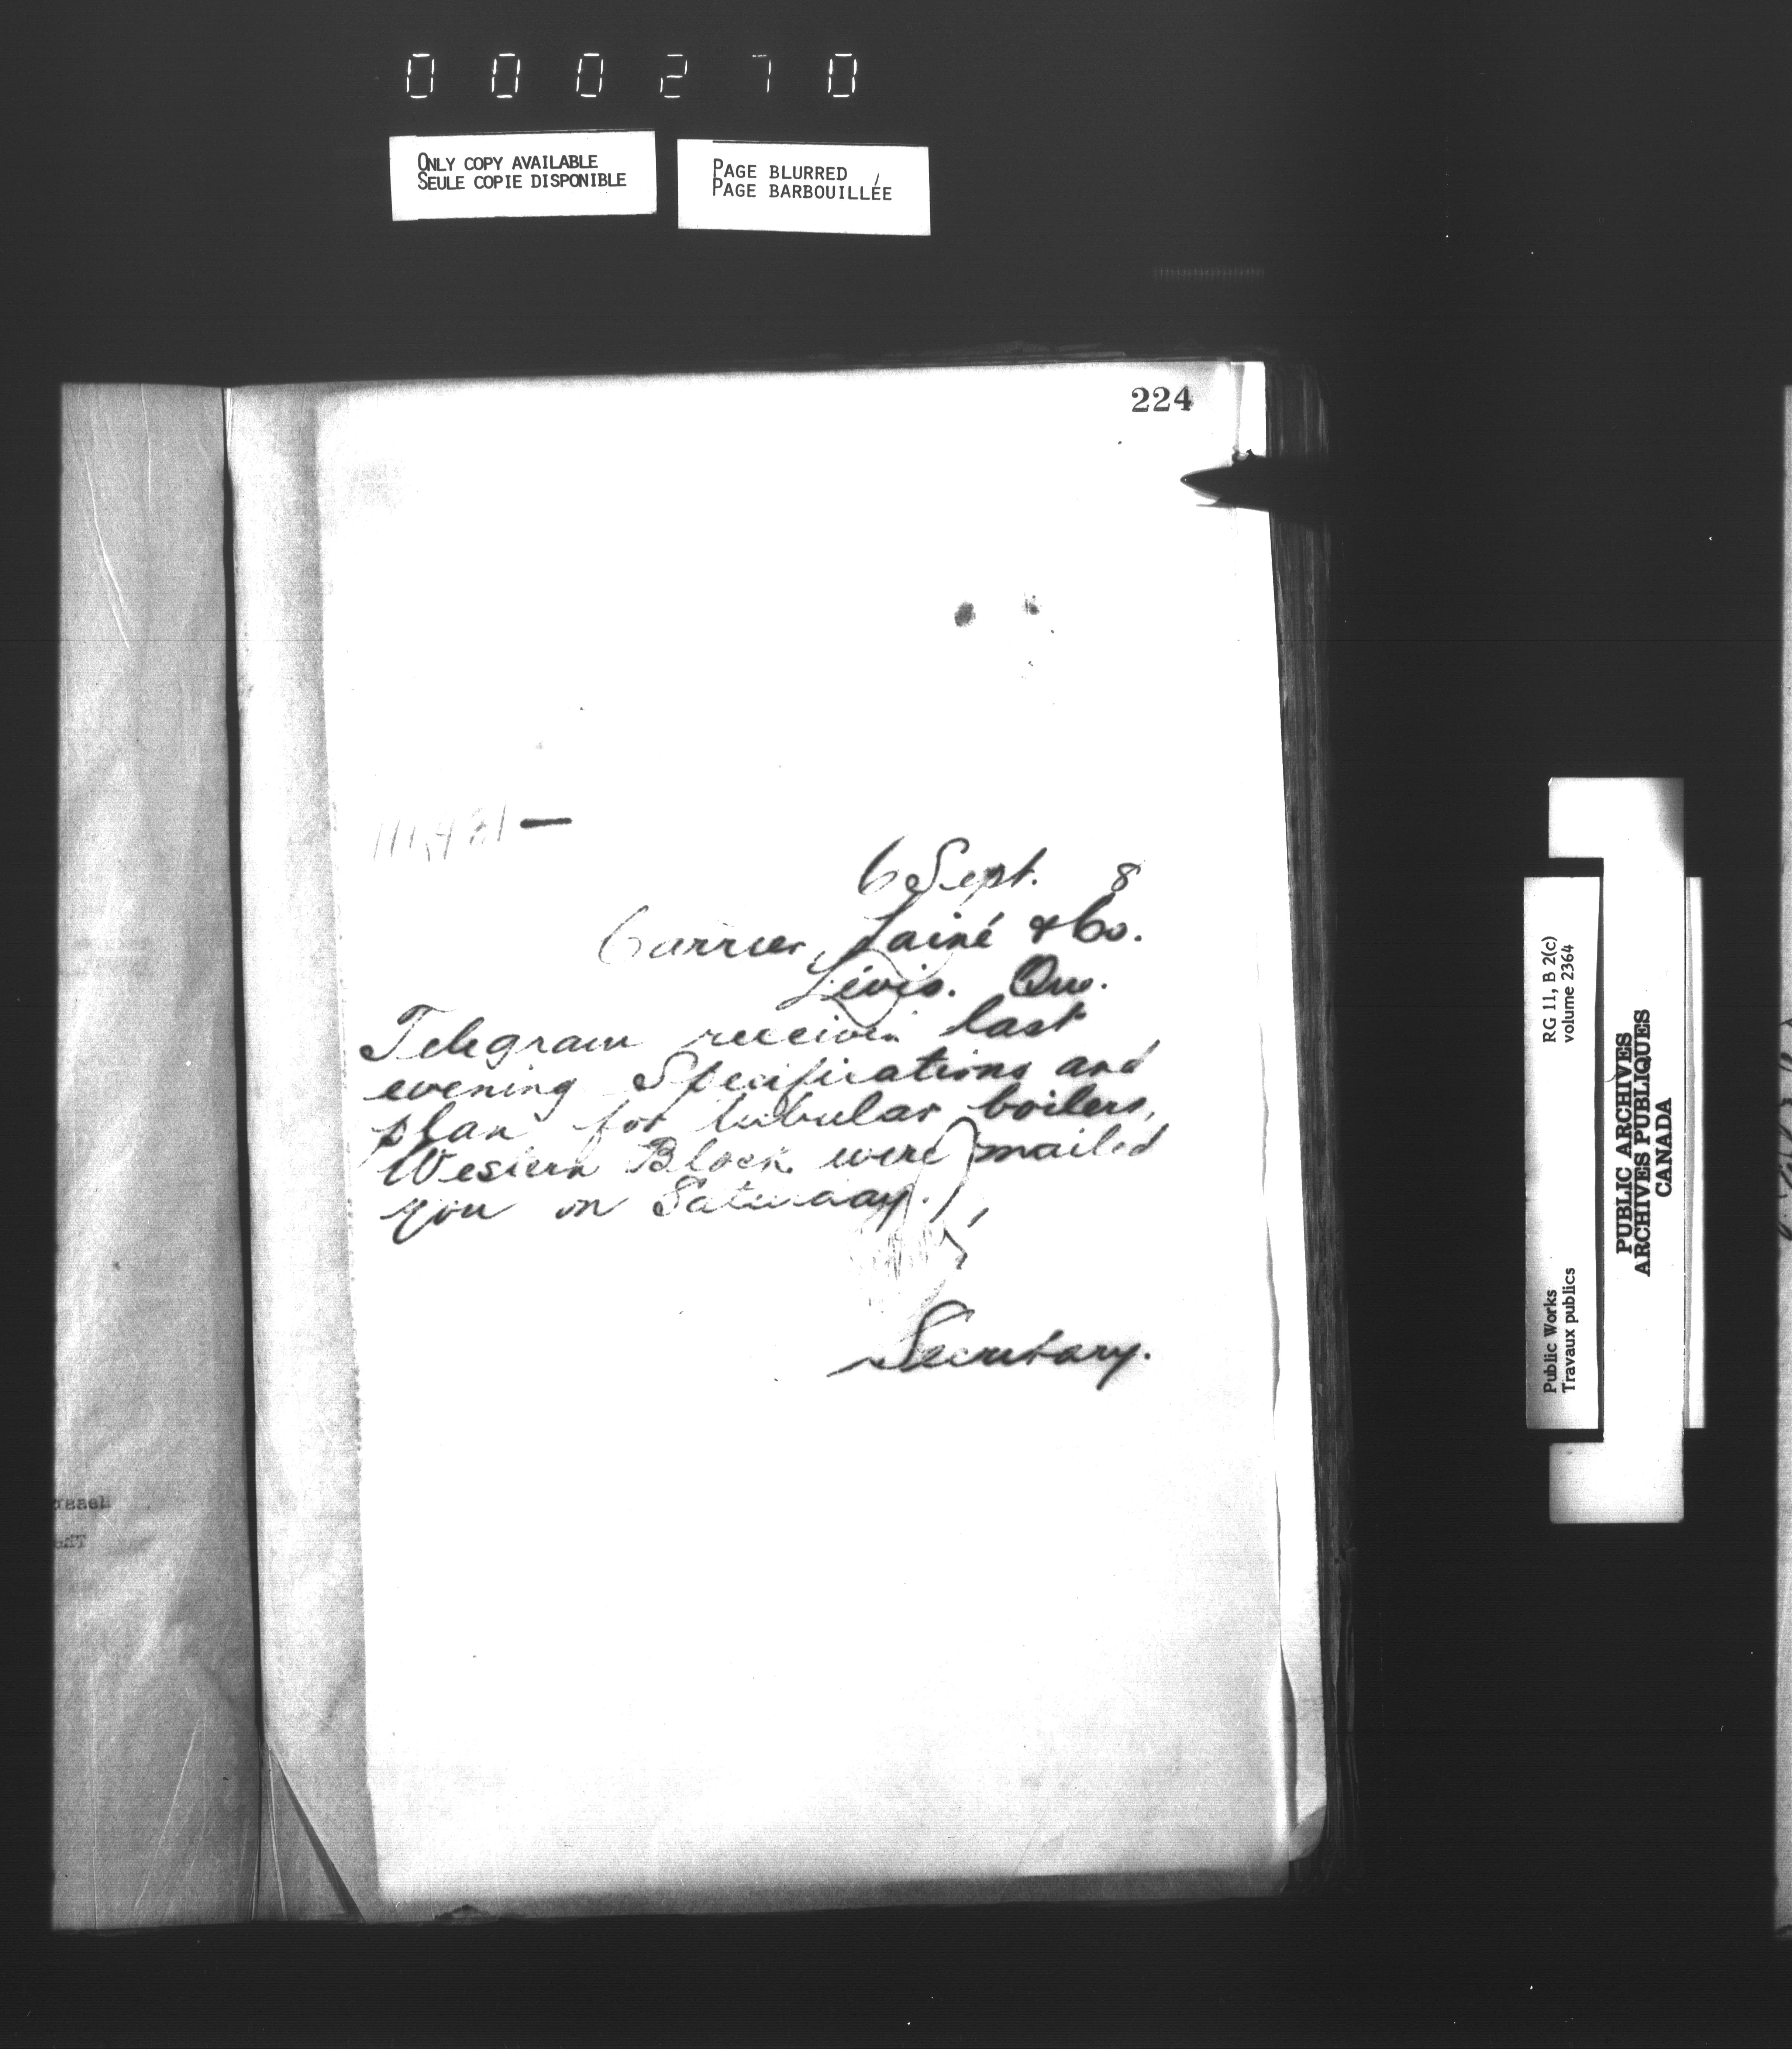 000270
ONLY COPY AVAILABLE
SEULE COPIE DISPONIBLE
PAGE BLURRED
PAGE BARBOUILLÉE
224
6 Sept. 8
Carrier, Lainé & Co.
Levis. Que.
Telegram received last
evening Specifications and
plan for tubular boilers,
Western Block were mailed
you on Saturday.
Secretary.
RG 11, B 2(c)
volume 2364
Public Works
Travaux publics
PUBLIC ARCHIVES
ARCHIVES PUBLIQUES
CANADA